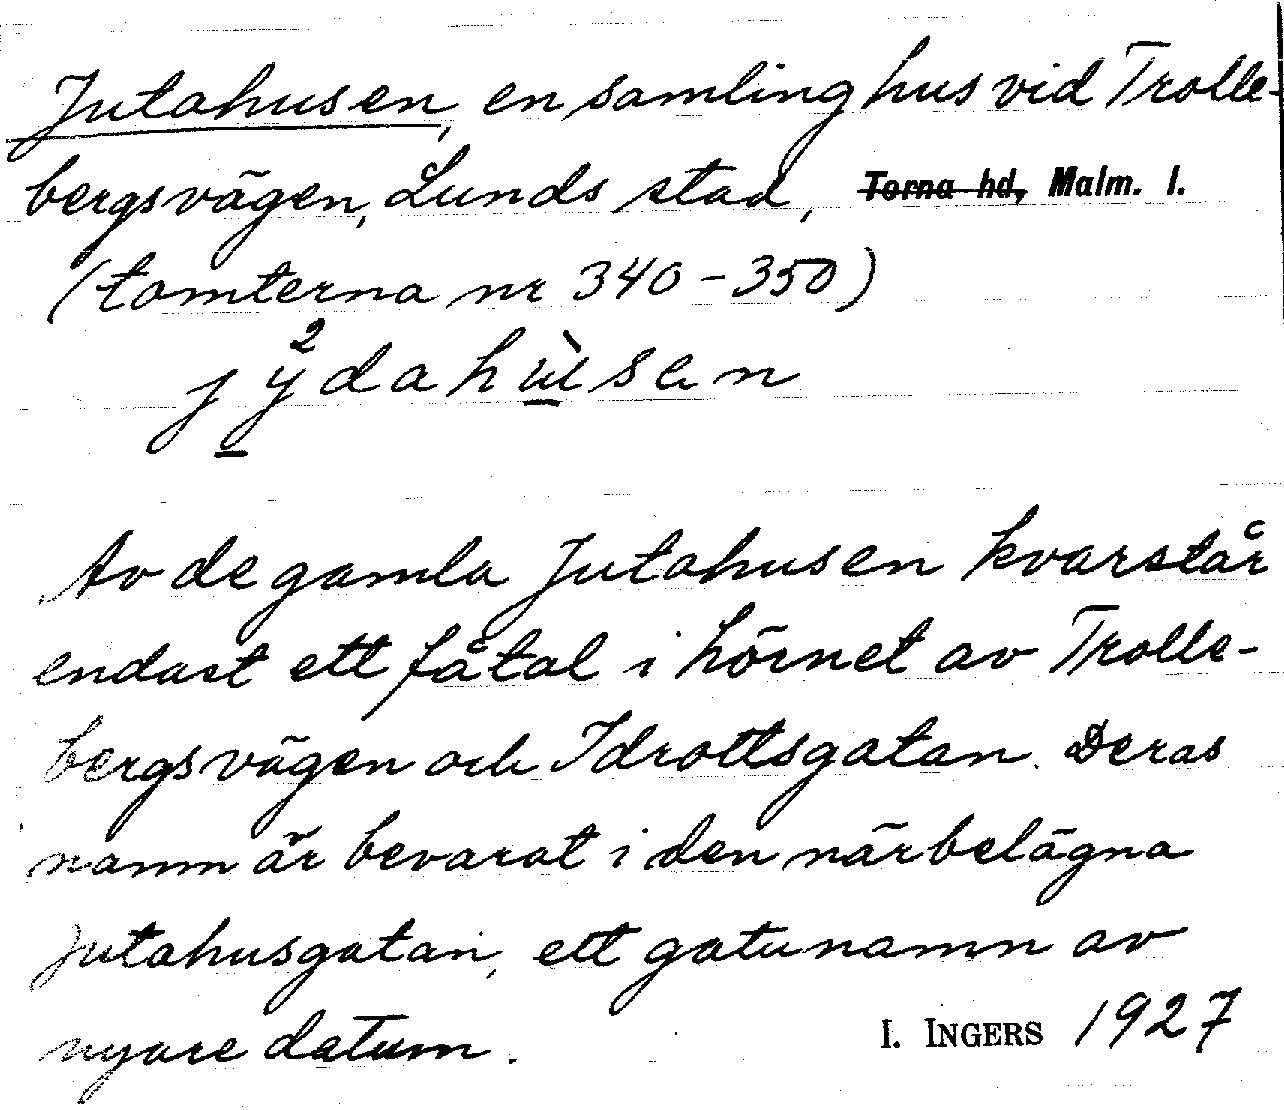 Jutahusen, en samling hus vid Trolle-
bergsvägen, Lunds stad, Torna hd, Malm. l.
(tomterna nr 340-350)
Av de gamla Jutahusen kvarstår
endast ett fåtal i hörnet av Trolle-
bergsvägen och Idrottsgatan. Deras
namn är bevarat i den närbelägna
Jutahusgatan, ett gatunamn av
nyare datum. I. INGERS 1927